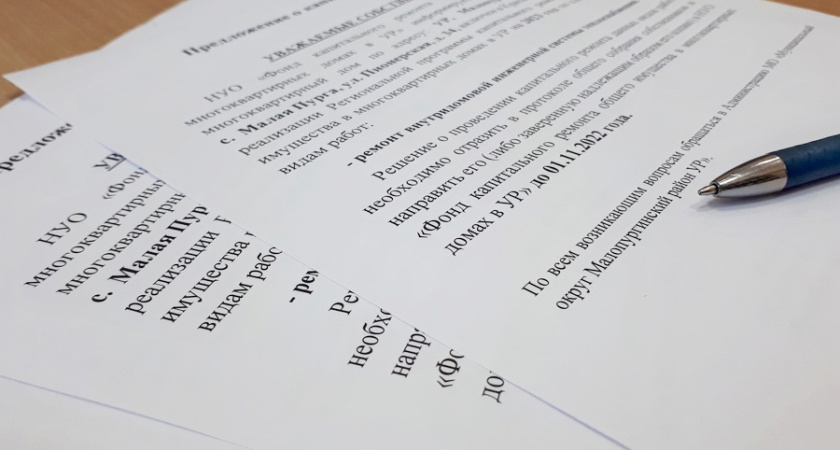 Предложение о кап
УВАЖАЕМЫЕ СОБСТВ
НУО «Фонд капитального ремонта
многоквартирных домах в УР» информиру
многоквартирный дом по адресу: УР, Мало
с. Малая Пурга, ул. Пионерская, д. 14, включен в
реализации Региональной программы капитального
имущества в многоквартирных домах в УР на 2023 год по
видам работ:
- ремонт внутридомовой инженерной системы теплоснабжения.
Решение о проведении капитального ремонта
необходимо отразить в протоколе общего собрания собственников и
направить его (либо заверенную надлежащим образом его копию) в НУО
«Фонд капитального ремонта общего имущества в многоквартирных
домах в УР» до 01.11.2022 года.
По всем возникающим вопросам обращаться в Администрацию МО «Муниципальный
округ Малопургинский район УР».
редложе
УВ
НУО «Фон
многоквартирны
многоквартирны
с. Малая Пур
реализации
имущества
видам рабо
- рем
Ре
необхо
напр
«Фо
до